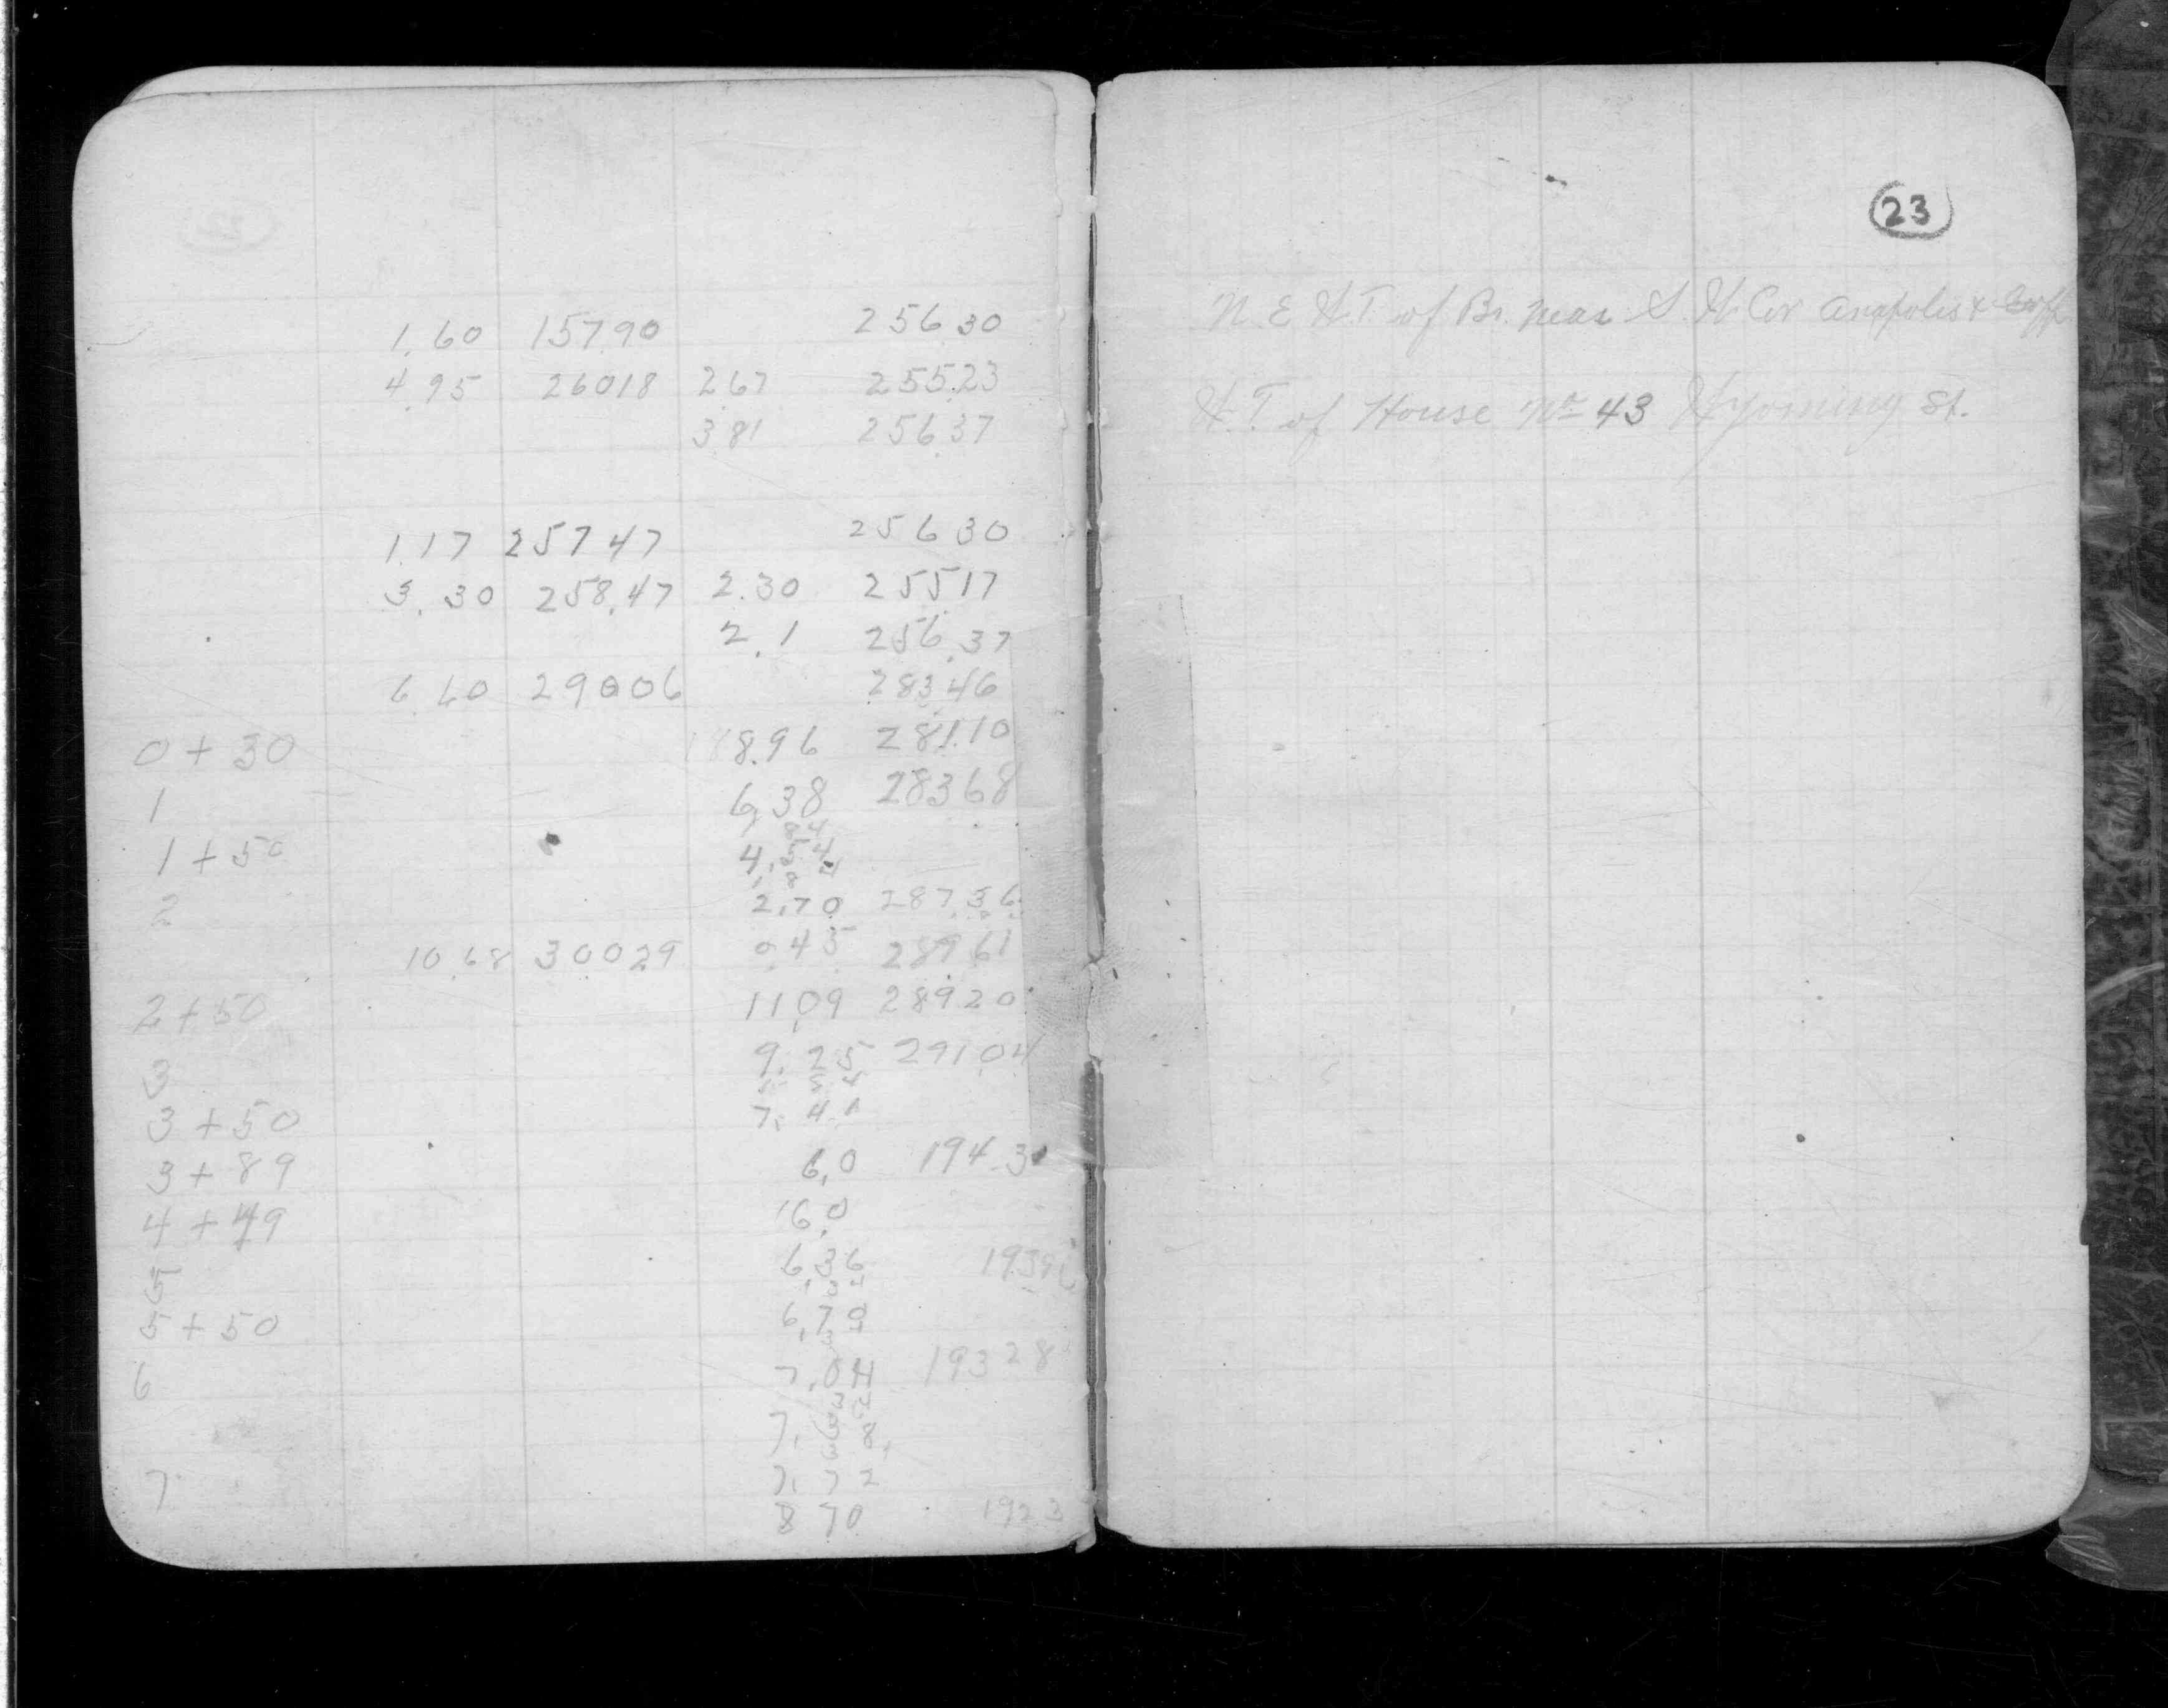 1.60 157.90 256.30
4.95 260.18 2.67 255.23
3.81 256.37
1.17 257.47 256.30
3.30 258.47 2.30 255.17
2.1 256.37
6.60 290.06 283.46
0+30 8.96 281.10
1 6.38 283.68
1+50 4.
2 2.70 287.36
10.68 300.29 0.45 289.61
2+50 11.09 289.20
3 9.25 291.04
3+50 7.4
3+89 6.0 194.3
4+49 16.0
5 6.36 193.9
5+50 6.70
6 7.04 193.28
7.
7 7.72
8.70 192.3
23
N. E W.T. of Br. near S. W. Cor Anapolis &
W.T. of House No 43 Wyoming St.